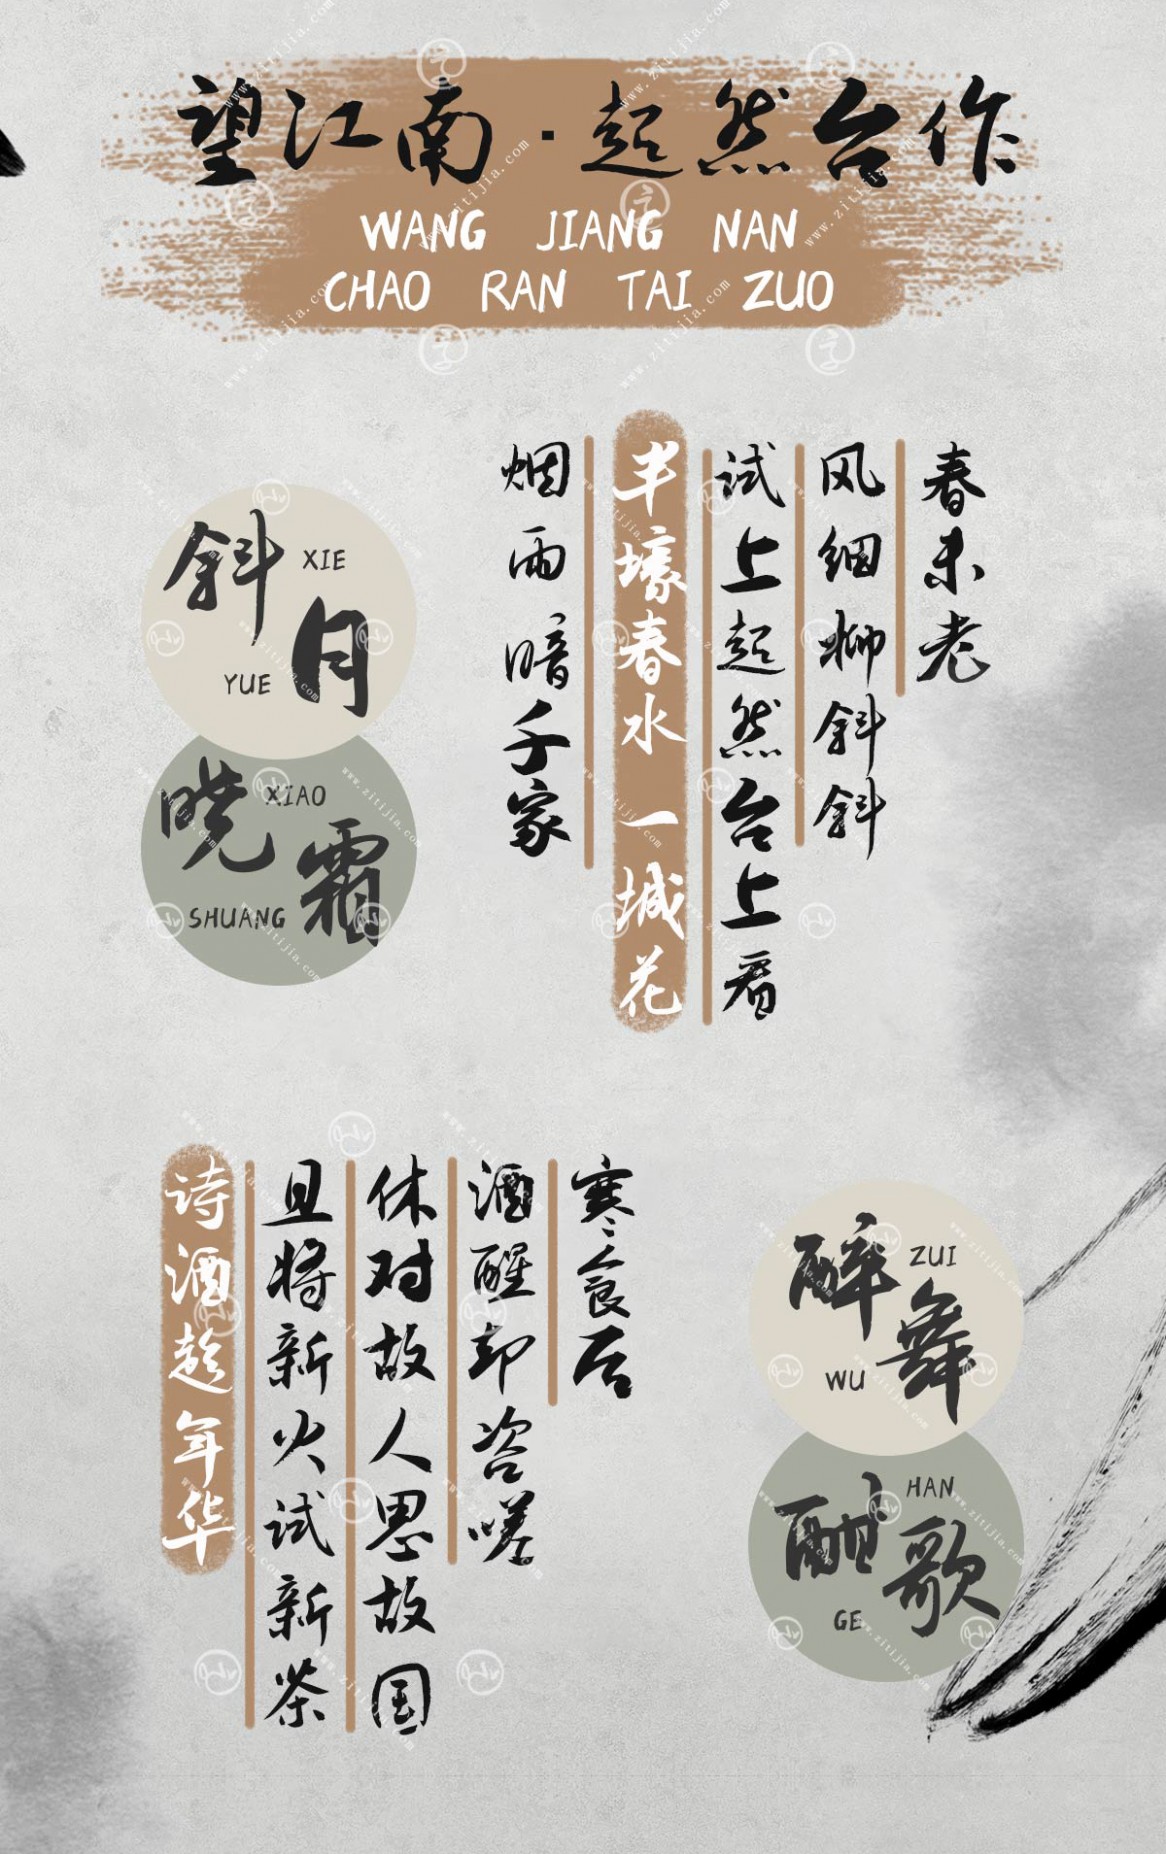 望江南·超然台作
WANG JIANG NAN
CHAO RAN TAI ZUO
春未老
风细柳斜斜
试上超然台上看
半壕春水一城花
烟雨暗千家
斜 XIE
YUE 月
晓 XIAO
SHUANG 霜
寒食后
酒醒却咨嗟
休对故人思故国
且将新火试新茶
诗酒趁年华
醉 ZUI
WU 舞
酣 HAN
GE 歌
www.zitijia.com